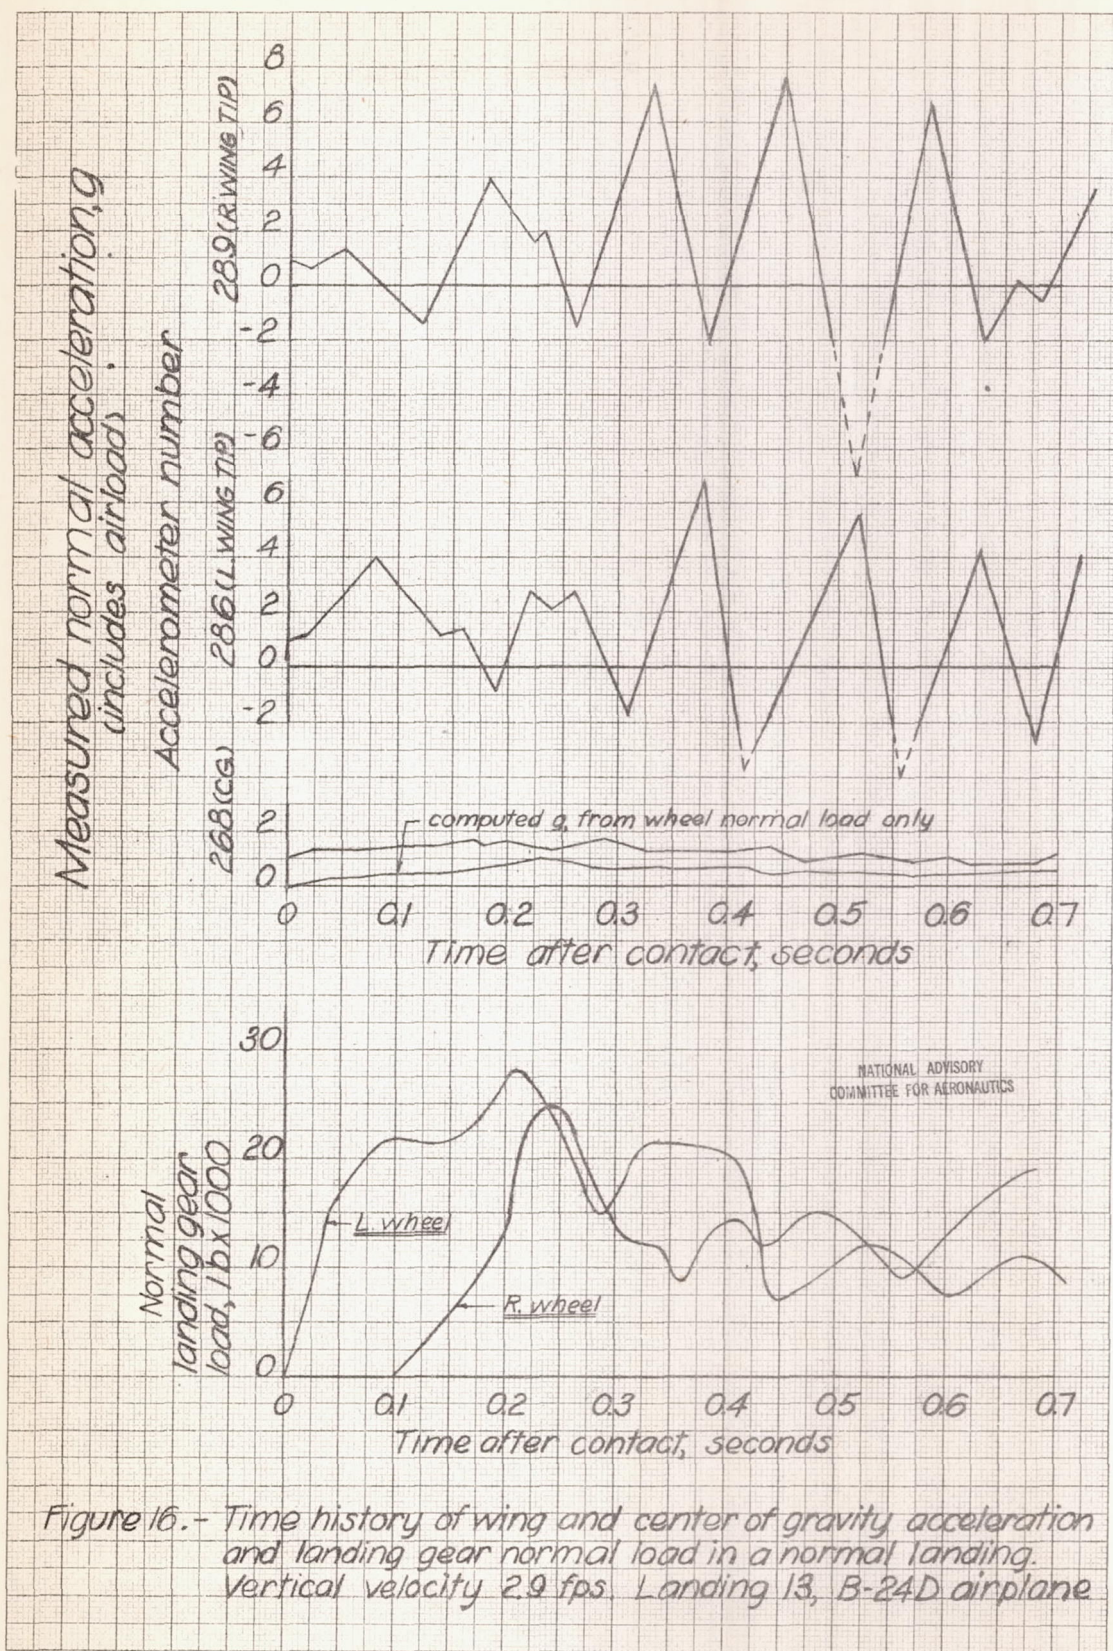 Measured normal acceleration, g
(includes airload)
Accelerometer number
289 (R. WING TIP)
8
6
4
2
0
-2
-4
-6
286 (L. WING TIP)
6
4
2
0
-2
268 (CG)
2
0
computed g, from wheel normal load only
0 0.1 0.2 0.3 0.4 0.5 0.6 0.7
Time after contact, seconds
Normal
landing gear
load, lb x 1000
30
20
10
0
NATIONAL ADVISORY
COMMITTEE FOR AERONAUTICS
L wheel
R. wheel
0 0.1 0.2 0.3 0.4 0.5 0.6 0.7
Time after contact, seconds
Figure 16.- Time history of wing and center of gravity acceleration
and landing gear normal load in a normal landing.
Vertical velocity 2.9 fps. Landing 13, B-24D airplane